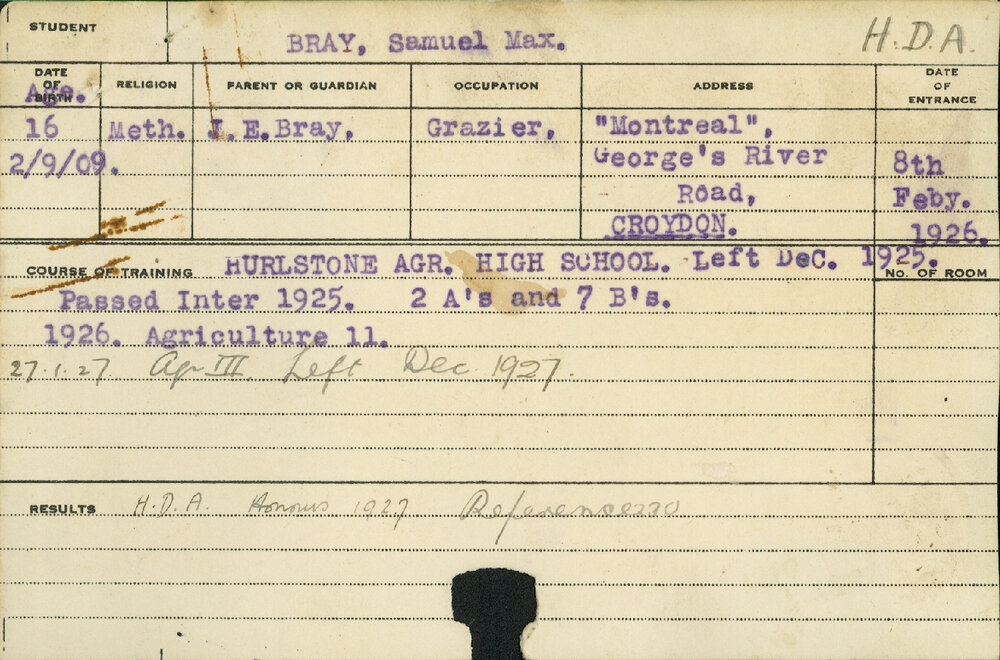 STUDENT
BRAY, Samuel Max.
H.D.A.
DATE OF BIRTH
Age.
RELIGION
PARENT OR GUARDIAN
OCCUPATION
ADDRESS
DATE OF ENTRANCE
16 Meth. J.E.Bray, Grazier, "Montreal",
2/9/09. George's River 8th
Road, Feby.
CROYDON. 1926.
COURSE OF TRAINING HURLSTONE AGR. HIGH SCHOOL. Left Dec. 1925.
No. OF ROOM
Passed Inter 1925. 2 A's and 7 B's.
1926. Agriculture 11.
27.1.27. Agr III Left Dec 1927.
RESULTS H.D.A. Honours 1927